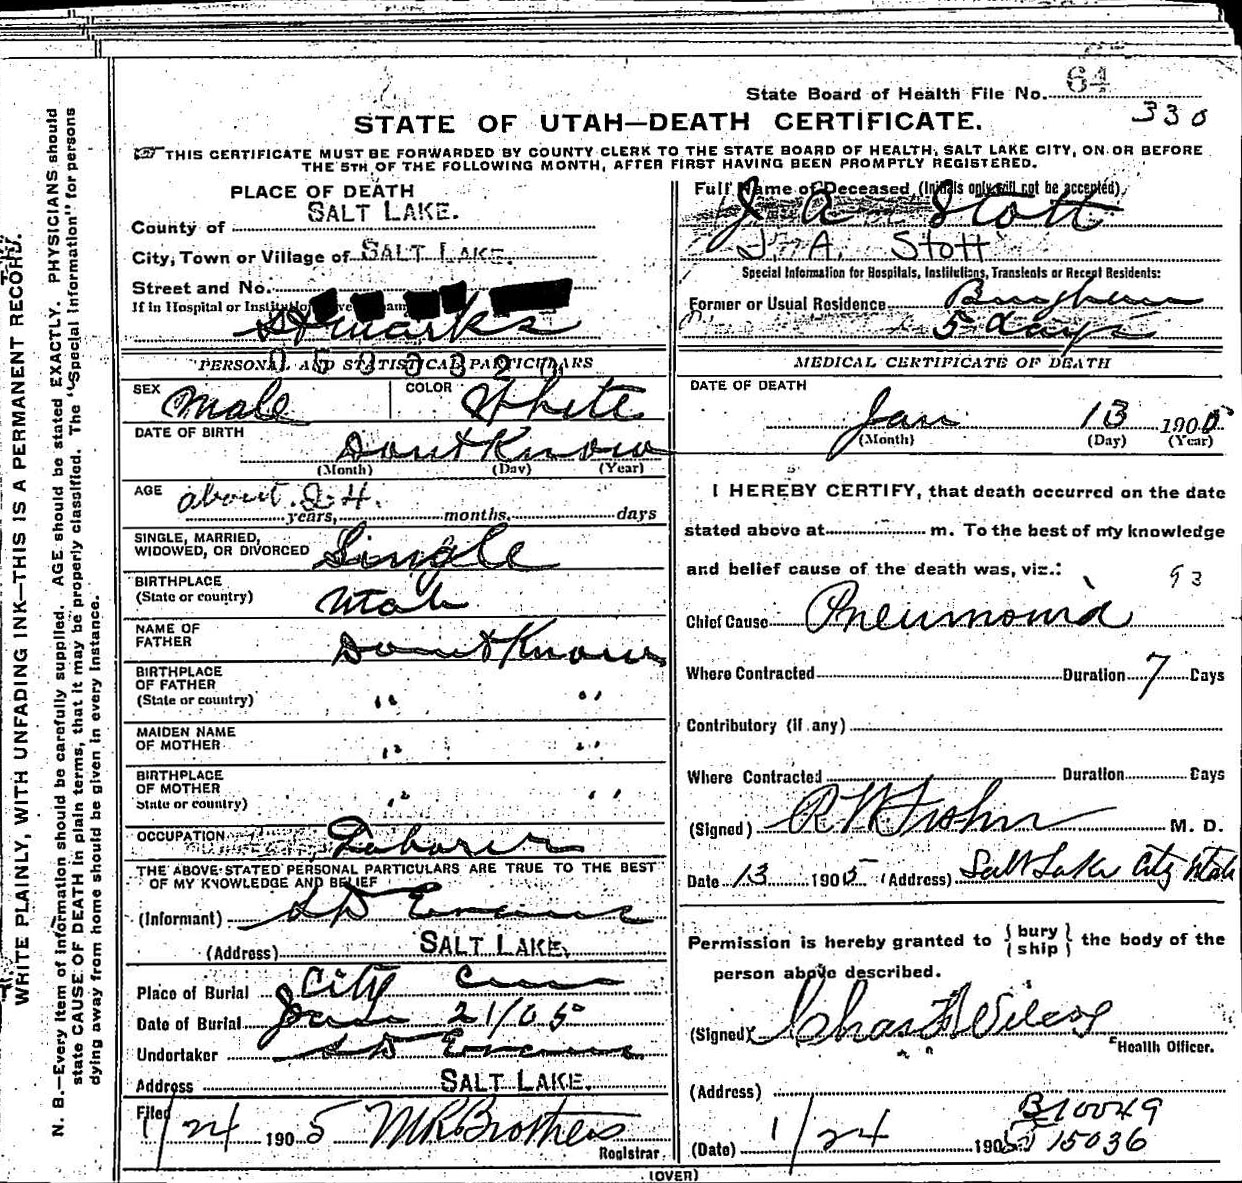 WRITE PLAINLY, WITH UNFADING INK—THIS IS A PERMANENT RECORD.
N. B.—Every item of information should be carefully supplied. AGE should be stated EXACTLY. PHYSICIANS should
state CAUSE OF DEATH in plain terms, that it may be properly classified. The "Special Information" for persons
dying away from home should be given in every instance.
State Board of Health File No. 64
330
STATE OF UTAH—DEATH CERTIFICATE.
THIS CERTIFICATE MUST BE FORWARDED BY COUNTY CLERK TO THE STATE BOARD OF HEALTH, SALT LAKE CITY, ON OR BEFORE
THE 5TH OF THE FOLLOWING MONTH, AFTER FIRST HAVING BEEN PROMPTLY REGISTERED.
PLACE OF DEATH
County of SALT LAKE.
City, Town or Village of SALT LAKE.
Street and No.
If in Hospital or Institution
St marks
PERSONAL AND STATISTICAL PARTICULARS
SEX Male COLOR White
DATE OF BIRTH Dont Know
(Month) (Day) (Year)
AGE about 24.
years, months, days
SINGLE, MARRIED,
WIDOWED, OR DIVORCED Single
BIRTHPLACE
(State or country) Utah
NAME OF
FATHER Dont Know
BIRTHPLACE
OF FATHER
(State or country) " "
MAIDEN NAME
OF MOTHER " "
BIRTHPLACE
OF MOTHER
State or country) " "
OCCUPATION Laborer
THE ABOVE STATED PERSONAL PARTICULARS ARE TRUE TO THE BEST
OF MY KNOWLEDGE AND BELIEF
(Informant) S D Evans
(Address) SALT LAKE.
Place of Burial City Cem
Date of Burial Jan 21/05
Undertaker S D Evans
Address SALT LAKE.
Filed
1/24 1905 M R Brothers
Registrar.
Full Name of Deceased, (Initials only will not be accepted)
J A Stott
J. A. Stott
Special Information for Hospitals, Institutions, Transients or Recent Residents:
Former or Usual Residence Bingham
5 days
MEDICAL CERTIFICATE OF DEATH
DATE OF DEATH
Jan 13 1905
(Month) (Day) (Year)
I HEREBY CERTIFY, that death occurred on the date
stated above at m. To the best of my knowledge
and belief cause of the death was, viz.:
93
Chief Cause Pneumonia
Where Contracted Duration 7 Days
Contributory (if any)
Where Contracted Duration Days
(Signed) M. D.
Date 13 1905 (Address) Salt Lake City Utah
Permission is hereby granted to {bury / ship} the body of the
person above described.
(Signed) Chas
Health Officer.
(Address)
B 10049
(Date) 1/24 1905 15036
(OVER)